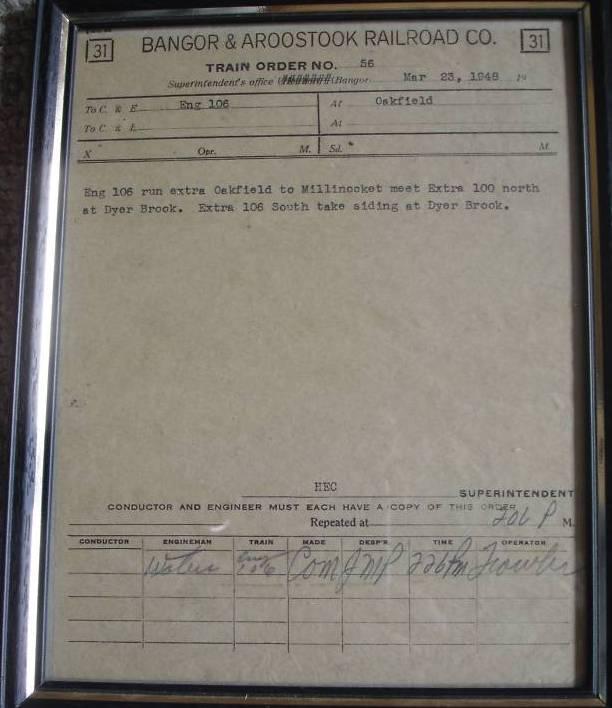 31 BANGOR & AROOSTOOK RAILROAD CO. 31
TRAIN ORDER NO. 56
Superintendent's office (Bangor Mar 23, 1948 19
To C. & E. Eng 106 At Oakfield
To C. & E. At
X Opr. M. Sd. M.
Eng 106 run extra Oakfield to Millinocket meet Extra 100 north
at Dyer Brook. Extra 106 South take siding at Dyer Brook.
HEC
SUPERINTENDENT
CONDUCTOR AND ENGINEER MUST EACH HAVE A COPY OF THIS ORDER
Repeated at 206 P M.
CONDUCTOR ENGINEMAN TRAIN MADE DESP'R TIME OPERATOR
Eng 106 Com JMP 226 Pm Fowler